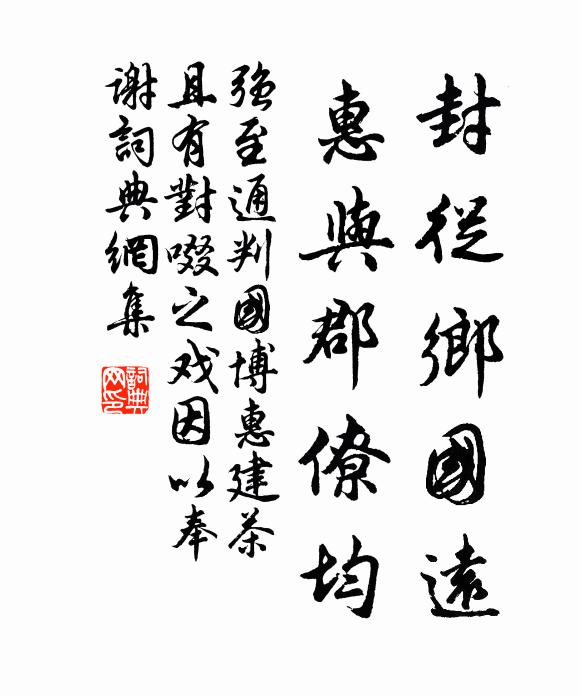 封從鄉國遠
惠與郡僚均
強至通判國博惠建茶
且有對啜之戏因以奉
謝詞典網集
詞典
网印